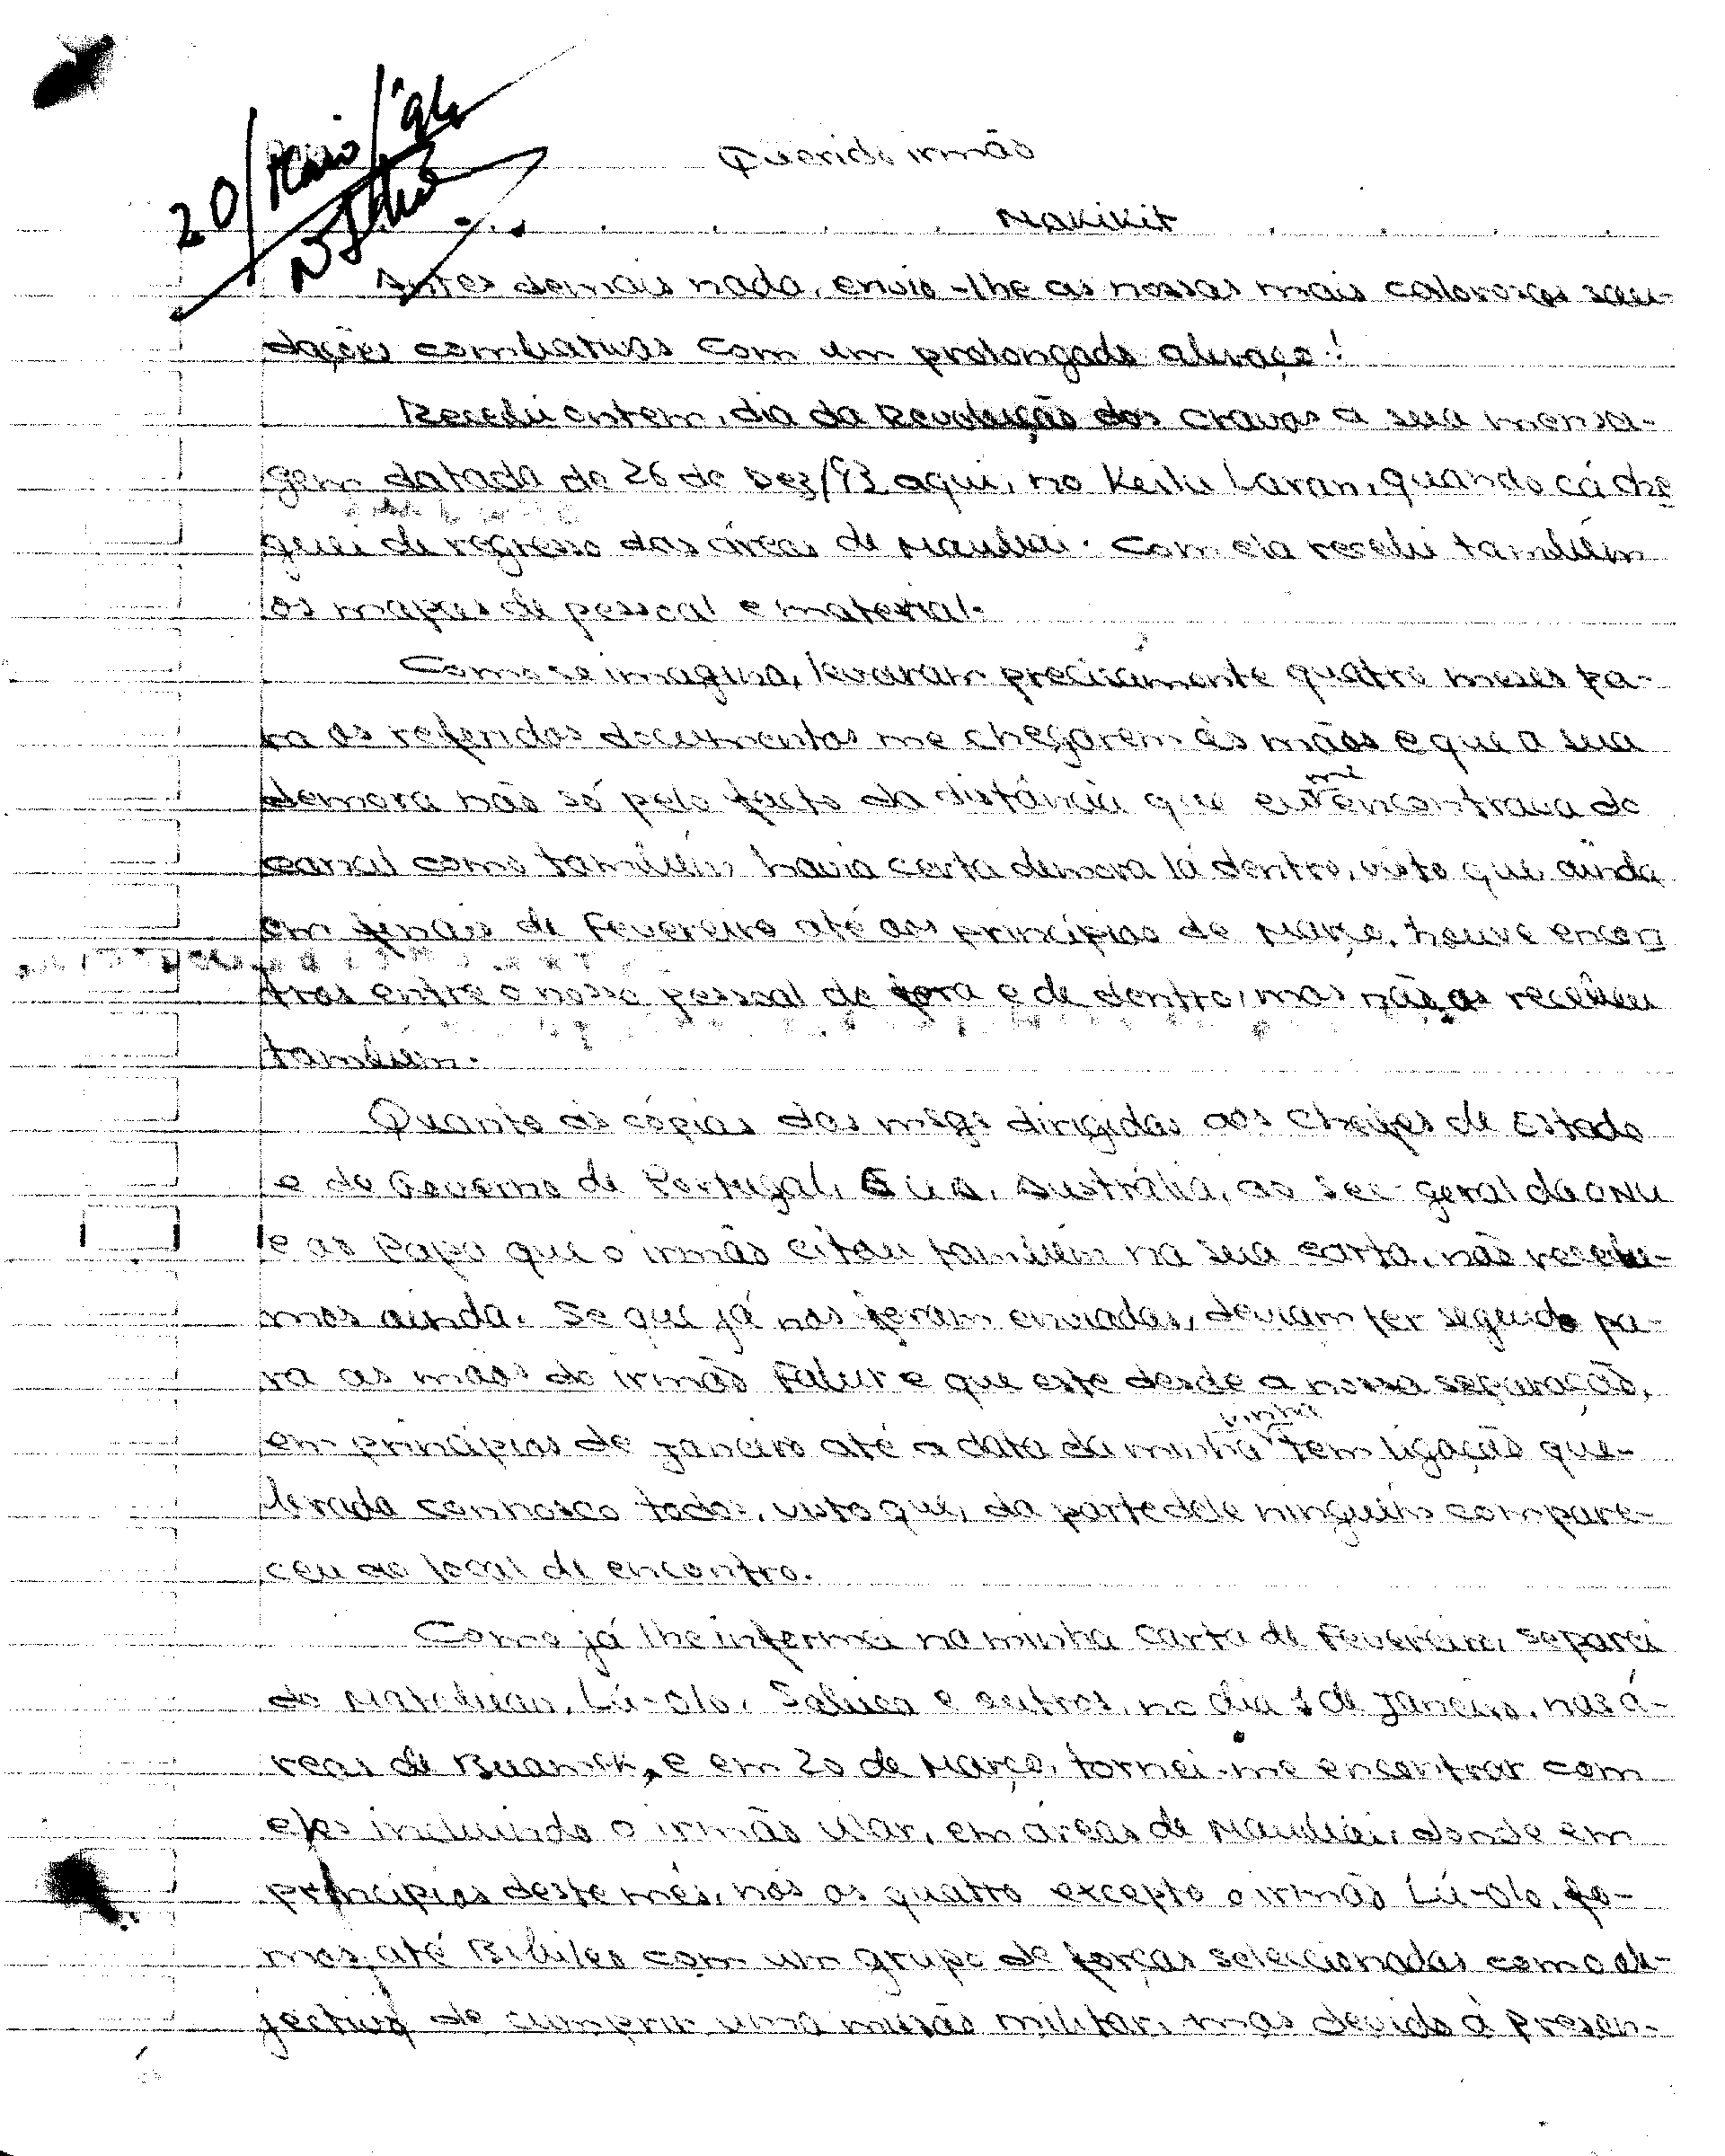 20/Maio/94
Querido irmão
Makikit
Antes demais nada, envio-lhe as nossas mais calorosas sau-
dações combativas com um prolongado abraço!
Recebi ontem, dia da Revolução dos Cravos a sua mensa-
gem datada de 26 de Dez/93 aqui, no Keilu Laran, quando cá che
guei de regresso das áreas de Maubai. Com ela recebi também
os mapas de pessoal e material.
Como se imagina, levaram precisamente quatro meses pa-
ra os referidos documentos me chegarem às mãos e que a sua
demora não só pelo facto da distância que eu me encontrava do
canal como também havia certa demora lá dentro, visto que, ainda
em finais de Fevereiro até aos princípios de Março, houve encon
tros entre o nosso pessoal de fora e de dentro, mas não as recebeu
também.
Quanto às cópias das msgs dirigidas aos Cheifes de Estado
e do Governo de Portugal, EUA, Austrália, ao Sec-geral da ONU
e ao Papa que o irmão citou também na sua carta, não recebe-
mos ainda. Se que já nos foram enviadas, deviam ter seguido pa-
ra as mãos do irmão Falur e que este desde a nossa separação,
em princípios de Janeiro até a data da minha vinha tem ligação que-
brada connosco todos, visto que, da parte dele ninguém compare-
ceu ao local de encontro.
Como já lhe informei na minha carta de Fevereiro, separei
do Matebuan, Lú-Olo, Sabica e outros, no dia 1 de Janeiro, nas á-
reas de Buanick, e em 20 de Março, tornei-me encontrar com
eles incluindo o irmão Ular, em áreas de Maubai, donde em
princípios deste mês, nós os quatro excepto o irmão Lú-Olo, fo-
mos até Bibileo com um grupo de forças seleccionadas com o ob-
jectivo de cumprir uma missão militar, mas devido à presen-